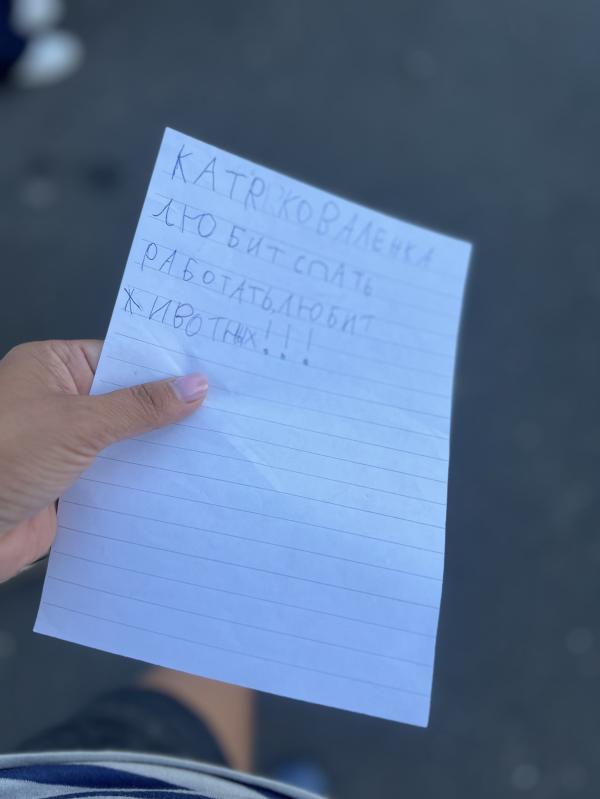 КАТЯ КОВАЛЕНКА
ЛЮБИТ СПАТЬ
РАБОТАТЬ, ЛЮБИТ
ЖИВОТНЫХ!!!